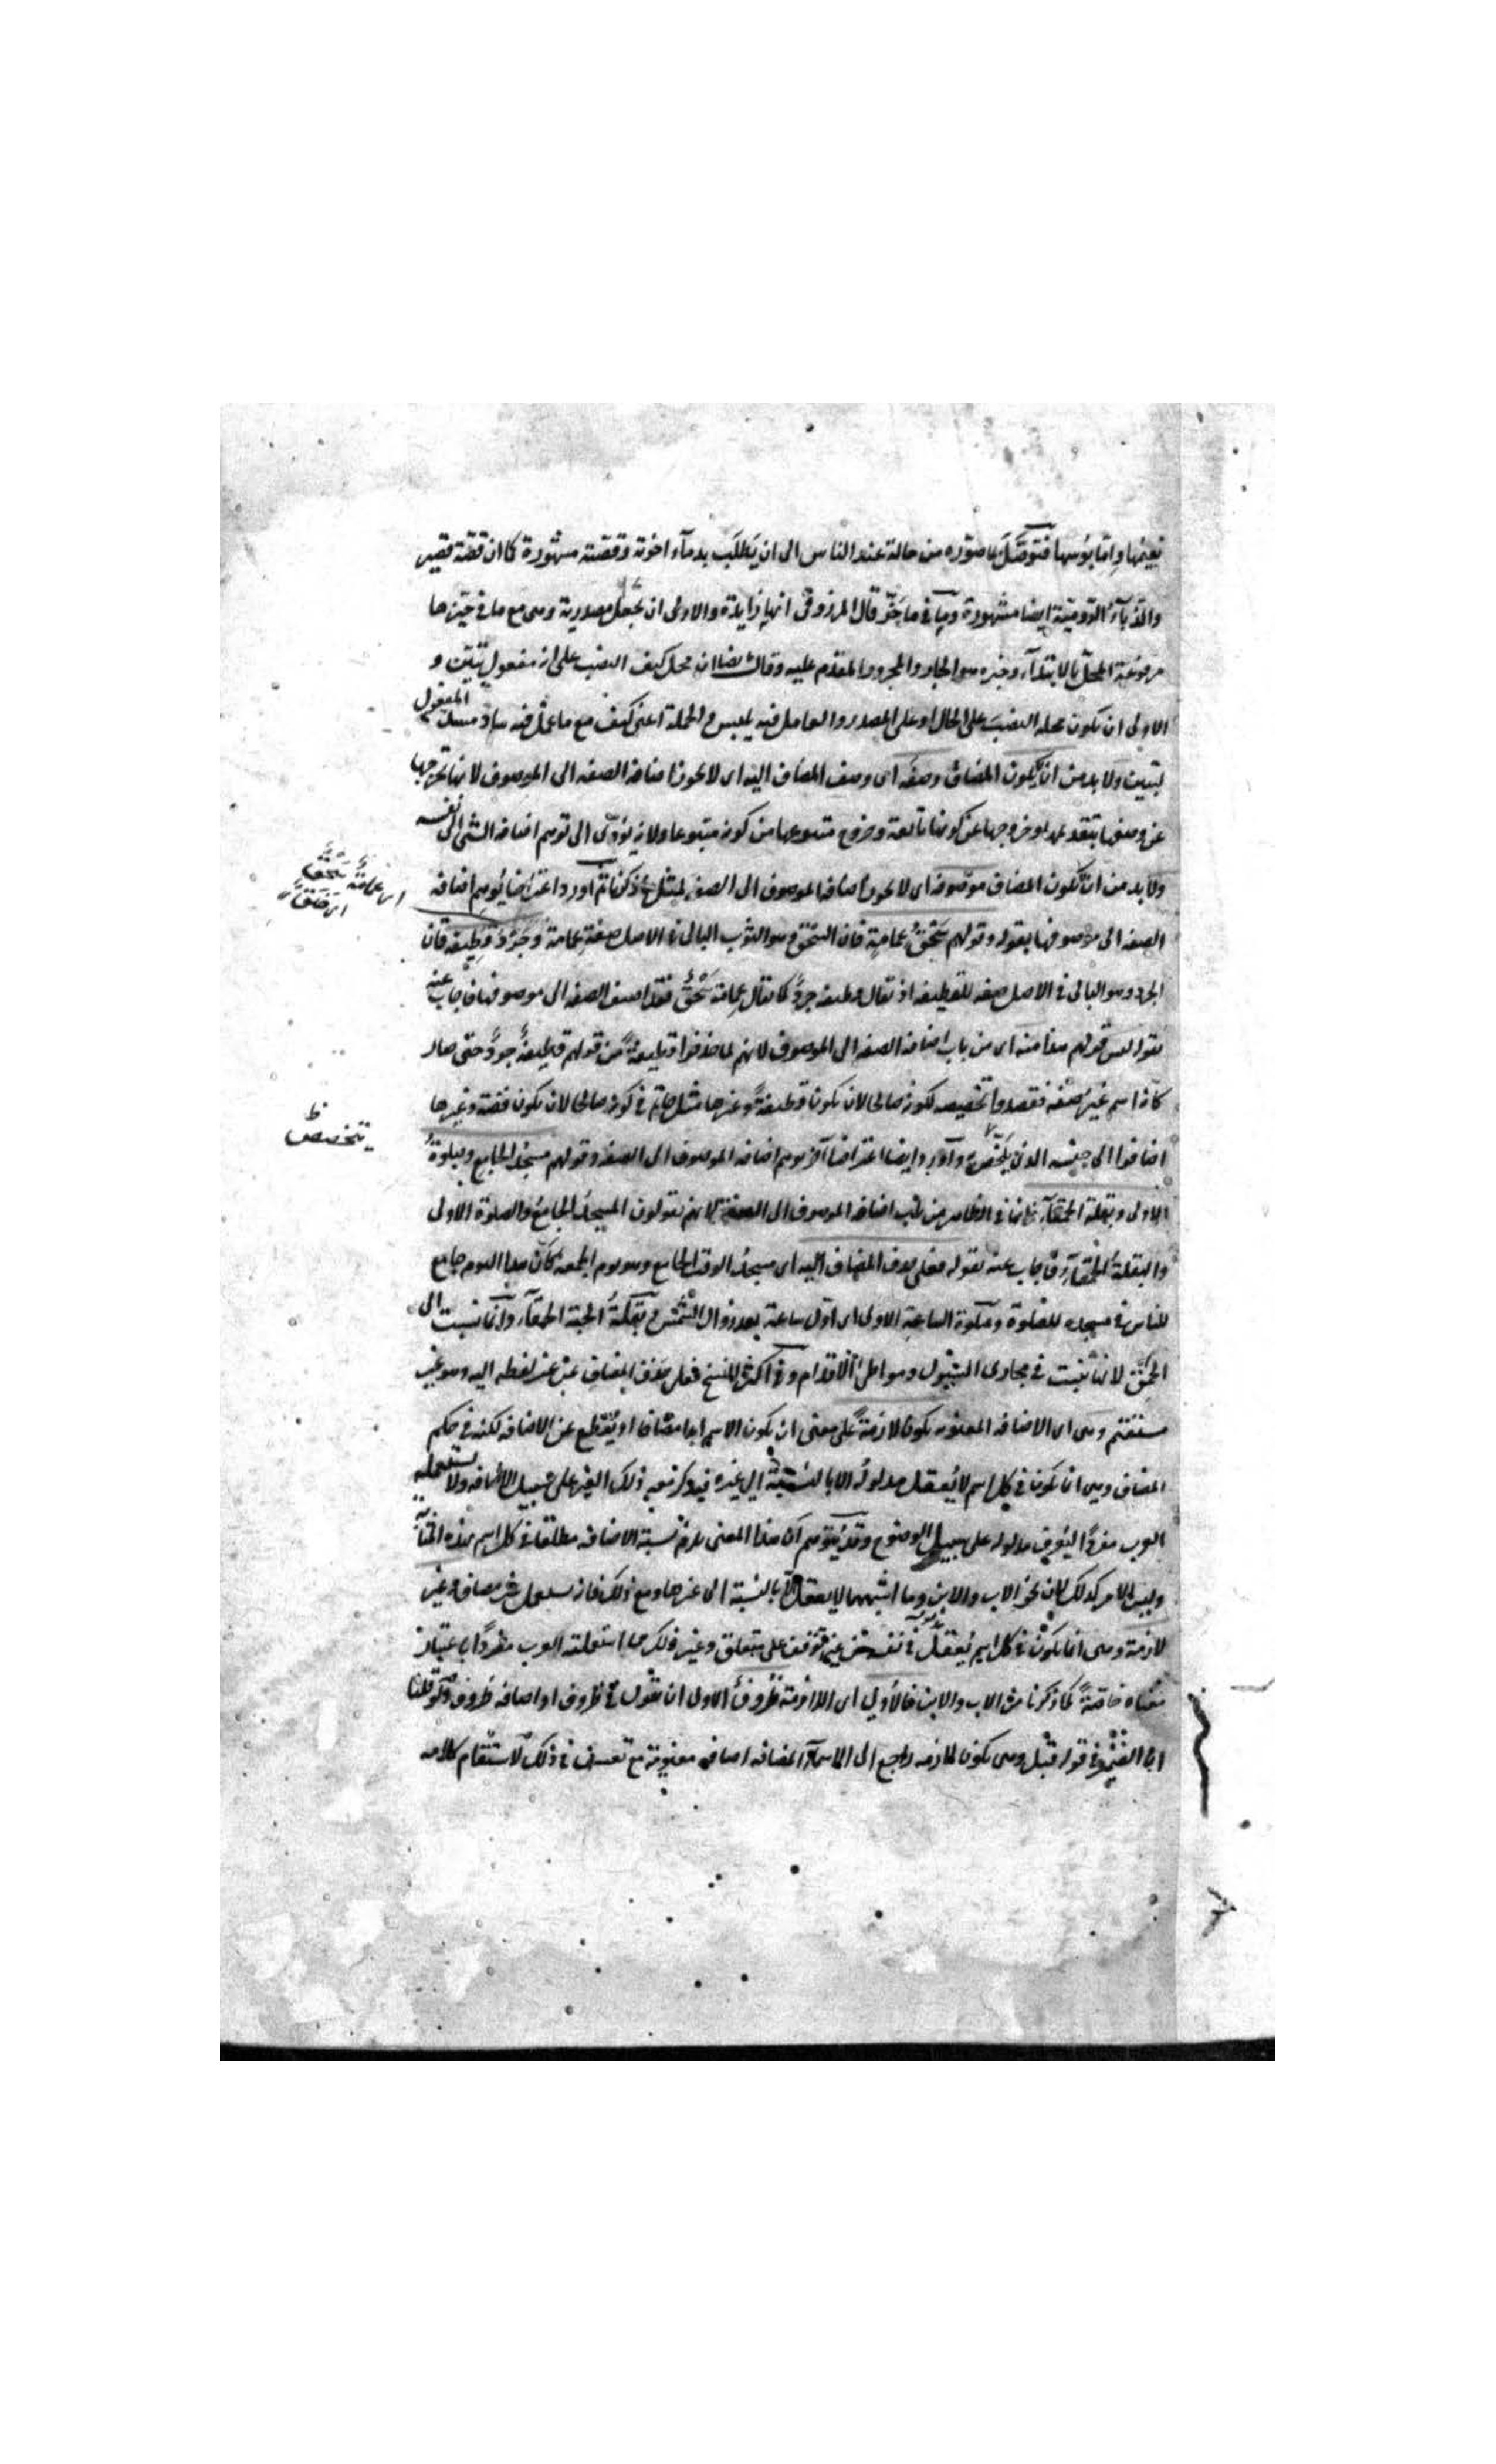 نعيمها واما بؤسها فتوصل بما صوره من حالة عند الناس الى ان يطلب بدماء اخوته وقصته مشهورة كما ان قصة قصير
والزباء الرومية ايضا مشهورة وما في ما جر قال المرزوقى انها زايدة والاولى ان تجعل مصدرية وهى مع ما فى حيزها
مرفوعة المحل بالابتداء وخبره هو الجار والمجرور المقدم عليه وقال ايضا ان محل كيف النصب على انه مفعول تبينت و
الاولى ان يكون محله النصب على الحال او على المصدر والعامل فيه يلبس والجملة اعنى كيف مع ما عمل فيه ساد مسد المفعول
لتبينت ولا بد من ان يكون المضاف وصفه اى وصف المضاف اليه اى لا يجوز اضافة الصفه الى الموصوف لانها تخرجها
عن وصفها بتقدمها وخروجها عن كونها تابعة وخروج متبوعها من كونه متبوعا ولانه يؤدى الى توهم اضافه الشئ الى نفسه
ولا بد من ان يكون المضاف موصوفه اى لا يجوز اضافه الموصوف الى الصفه لمثل ما ذكرنا ثم اورد اعتراضا يوهم اضافه
الصفه الى موصوفها بقوله وقولهم سحق عمامة فان السحق وهو الثوب البالى فى الاصل صفة عمامة وجرد قطيفه فان
الجرد وهو البالى فى الاصل صفه للقطيفه اذ يقال قطيفه جرد كما يقال عمامة سحق فقد اضيف الصفه الى موصوفها فاجاب عنه
بقوله ليس قولهم هذا منه اى من باب اضافه الصفه الى الموصوف لانهم لما حذفوا قطيفة من قولهم قطيفة جرد حتى صار
كانه اسم غير صفه فقصدوا تخصيصه لكونه صالحا لان يكون قطيفة وغيرها مثل خاتم فى كونه صالحا لان يكون فضه وغيرها
اضافوا الى جنسه الذى يتخصص به واورد ايضا اعتراضا اخر يوهم اضافه الموصوف الى الصفه وقولهم مسجد الجامع وصلوة
الاولى وبقلة الحمقاء فانها فى الظاهر من باب اضافه الموصوف الى الصفة لانهم يقولون المسجد الجامع والصلوة الاولى
والبقلة الحمقاء فاجاب عنه بقوله فعلى حذف المضاف اليه اى مسجد الوقت الجامع وهو يوم الجمعه كان هذا اليوم جامع
للناس فى مسجده للصلوة وصلوة الساعة الاولى اى اول ساعة بعد زوال الشمس وبقلة الحبة الحمقاء وانما نسبت الى
الحمق لانها تنبت فى مجارى السيول ومواطئ الاقدام وفى اكثر النسخ فعلى حذف المضاف عبر عنه لفظه اليه وهو غير
مستقيم وهى اى الاضافه المعنويه يكون لازمة على معنى ان يكون الاسم ابدا مضافا او يقطع عن الاضافه لكنه فى حكم
المضاف وهى انما تكون فى كل اسم لا يعقل مدلوله الا بالنسبة الى غيره فيذكر معه ذلك الغير على سبيل الاضافه ولا يستعمله
العرب مفردا ليعرف مدلوله على سبيل الوضوح وقد يتوهم ان هذا المعنى يلزم نسبة الاضافه مطلقا فى كل اسم بهذه المثابة
وليس الامر كذلك فان نحو الاب والابن وما اشبههما لا يعقل الا بالنسبة الى غيرها ومع ذلك فانه يستعمل غير مضاف وغير
لازمة وهى انما تكون فى كل اسم يعقل مدلوله فى نفسه من غير توقف على متعلق وغير ذلك مما استعملته العرب مفردا باعتبار
معناه خاصة كما ذكرنا من الاب والابن فالاولى اى اللازمة ظروف الاولى ان يقول فى ظروف او اضافه ظروف ولو قلنا
ان الضمير فى قوله قبل وهى يكون لازمه راجع الى الاسماء المضافه اضافه معنوية مع تعسف فى ذلك لاستقام كلامه
اى عمامة سحق
تخصيص ظ